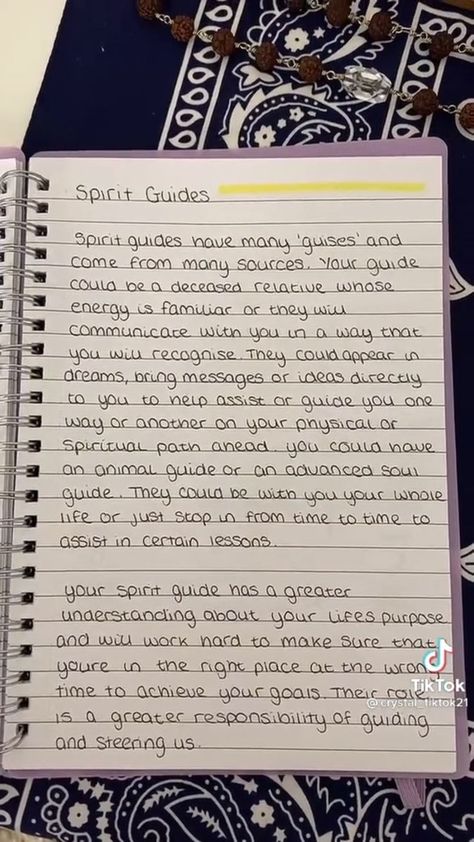 Spirit Guides
Spirit guides have many 'guises' and
come from many sources. Your guide
could be a deceased relative whose
energy is familiar or they will
communicate with you in a way that
you will recognise. They could appear in
dreams, bring messages or ideas directly
to you to help assist or guide you one
way or another on your physical or
spiritual path ahead. you could have
an animal guide or an advanced soul
guide. They could be with you your whole
life or just stop in from time to time to
assist in certain lessons.
your spirit guide has a greater
understanding about your lifes purpose
and will work hard to make sure that
youre in the right place at the wrong
time to achieve your goals. Their role
is a greater responsibility of guiding
and steering us.
TikTok
@crystal_tiktok21